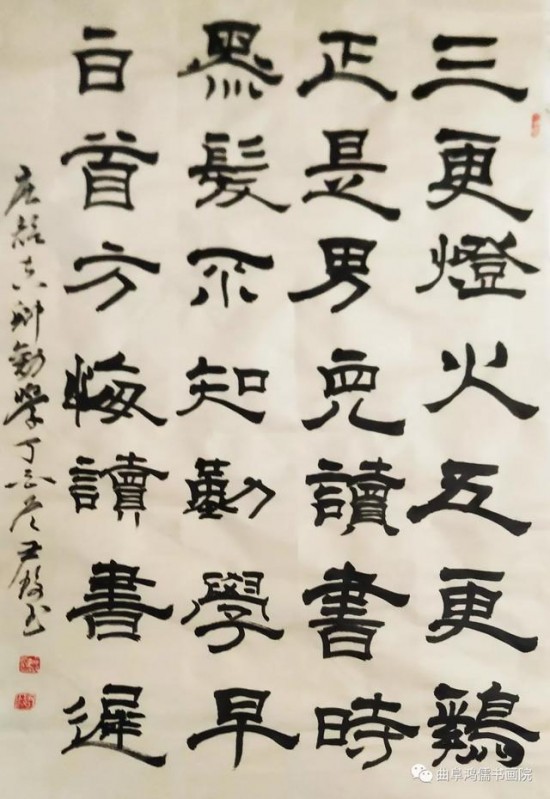 三更燈火五更鷄
正是男兒讀書時
黑髮不知勤學早
白首方悔讀書遲
唐顔真卿勸學丁酉冬
曲阜鸿儒书画院